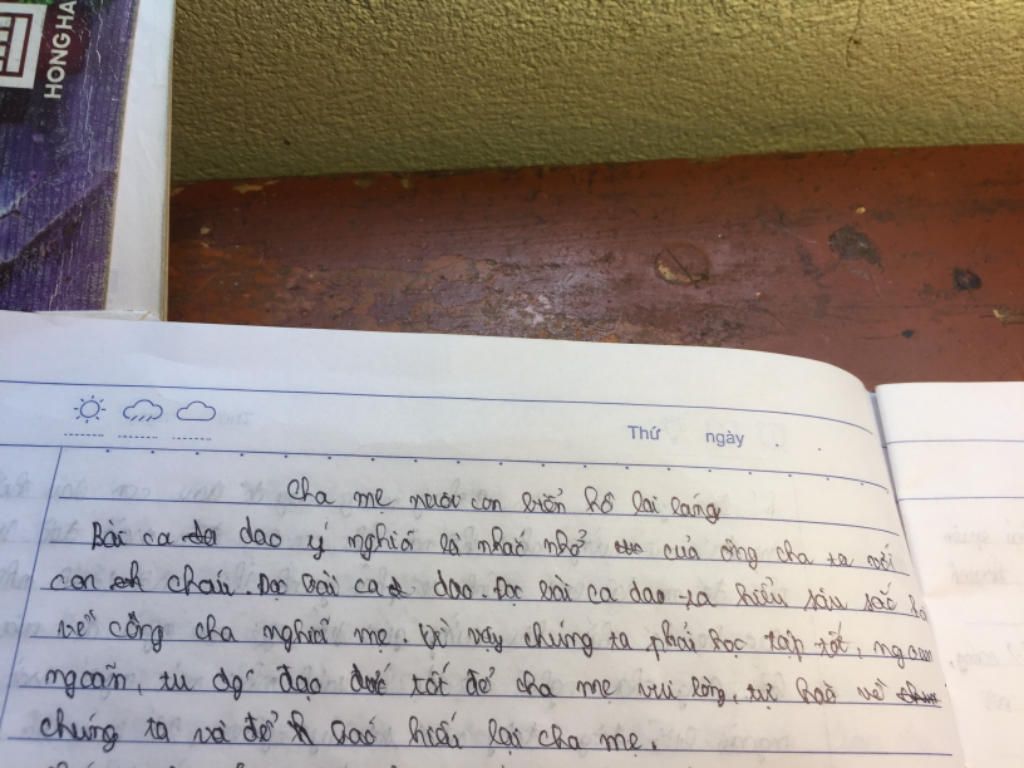 HONG HA
Thứ ngày
Cha mẹ nuôi con biển hồ lai láng
Bài ca dao ý nghĩa là nhắc nhở của ông cha ta với
con cháu. Đọc bài ca dao. Đọc bài ca dao ta hiểu sâu sắc
về công cha nghĩa mẹ. Vì vậy chúng ta phải học tập tốt, ngoan
ngoãn, tu dưỡng đạo đức tốt để cha mẹ vui lòng, tự hào về
chúng ta và để báo hiếu lại cha mẹ.